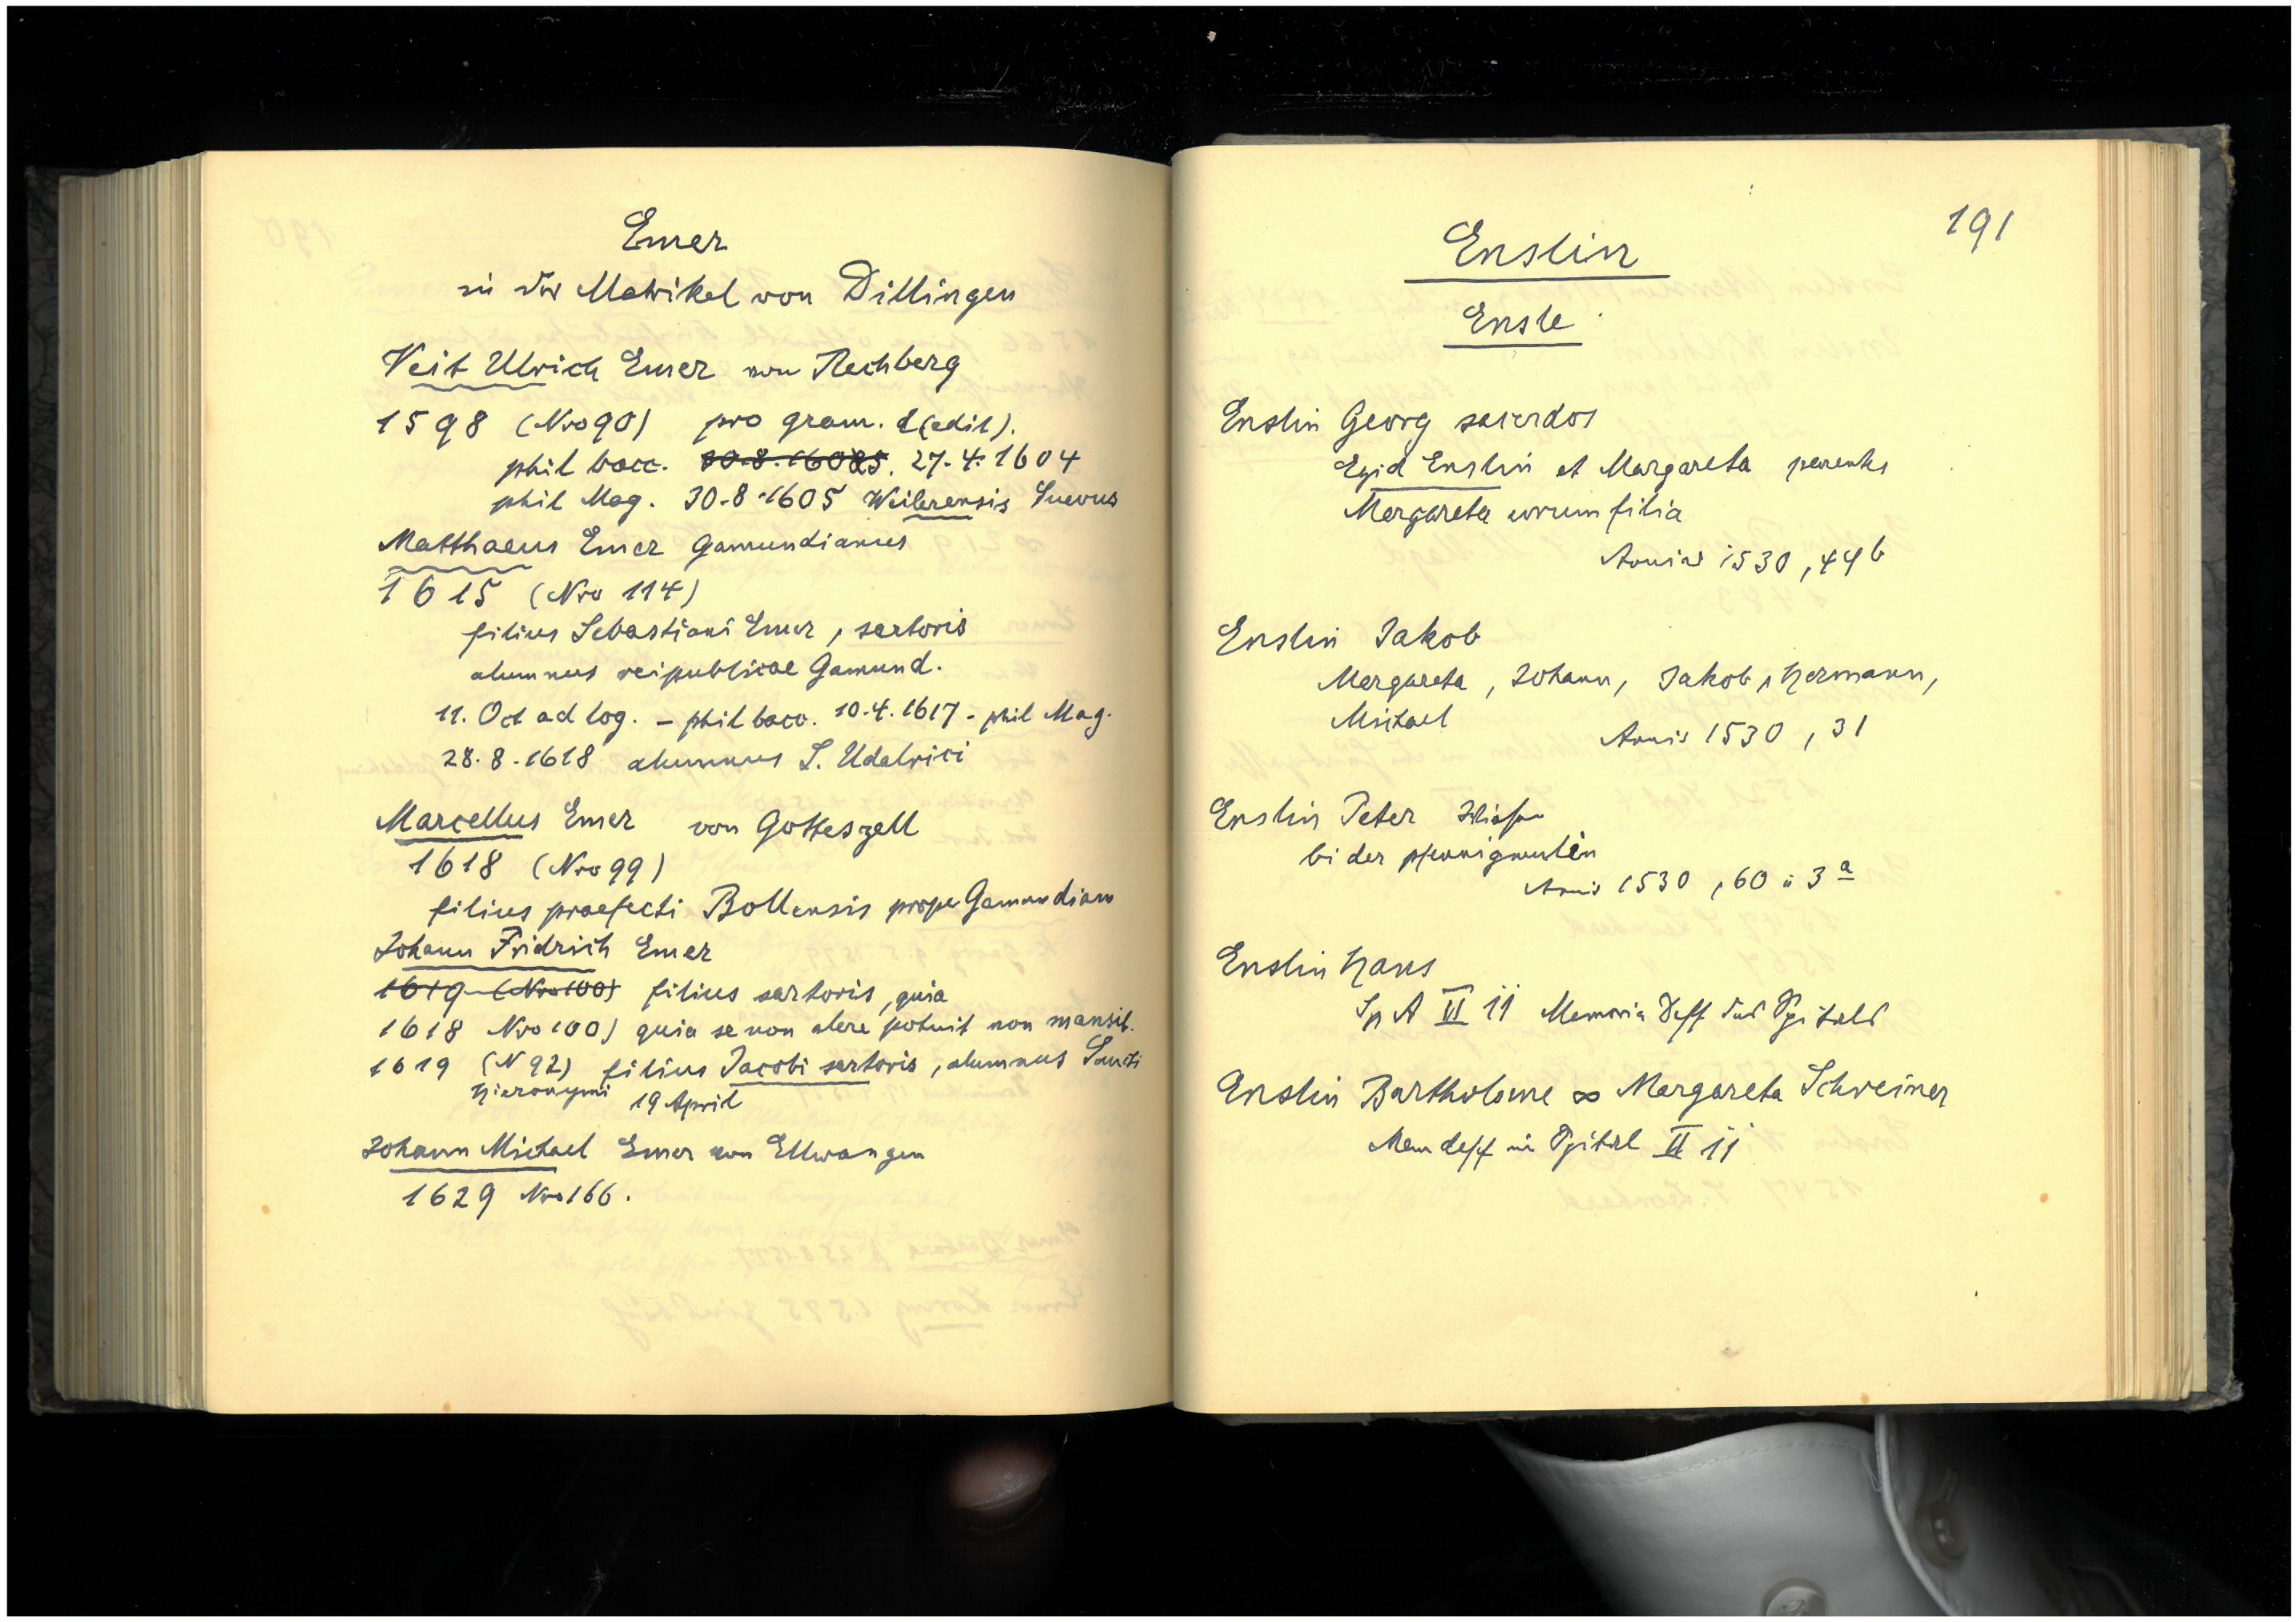 Emer
in der Matrikel von Dillingen
Veit Ulrich Emer von Rechberg
1598 (Nro 90) pro gram. d(edit).
phil bacc. 30.8.1605. 27.4.1604
phil Mag. 30.8.1605 Weilerensis Suevus
Matthaeus Emer Gamundianus
1615 (Nro 114)
filius Sebastiani Emer, sartoris
alumnus reipublicae Gamund.
11. Oct ad log. – phil bacc. 10.4.1617 – phil Mag.
28.8.1618 alumnus S. Udalrici
Marcellus Emer von Gotteszell
1618 (Nro 99)
filius praefecti Bollensis prope Gamundiam
Johann Fridrich Emer
1619 (Nro 100) filius sartoris, quia
1618 Nro 100) quia se non alere potuit non mansit.
1619 (N 92) filius Jacobi sartoris, alumnus Sancti
Hieronymi 19 April
Johann Michael Emer von Ellwangen
1629 Nro 166.
191
Enslin
Ensle
Enslin Georg sacerdos
Egid Enslin et Margareta parentes
Margareta eorum filia
Annivs 1530, 44b
Enslin Jakob
Margareta, Johann, Jakob, Hermann,
Michael
Annis 1530, 31
Enslin Peter
bi der pfennigmulin
Annis 1530, 60 u 3a
Enslin Hans
Sp A VI 11 Memoria Deff des Spitals
Enslin Bartholome ∞ Margareta Schreiner
Mem deff im Spital II 11